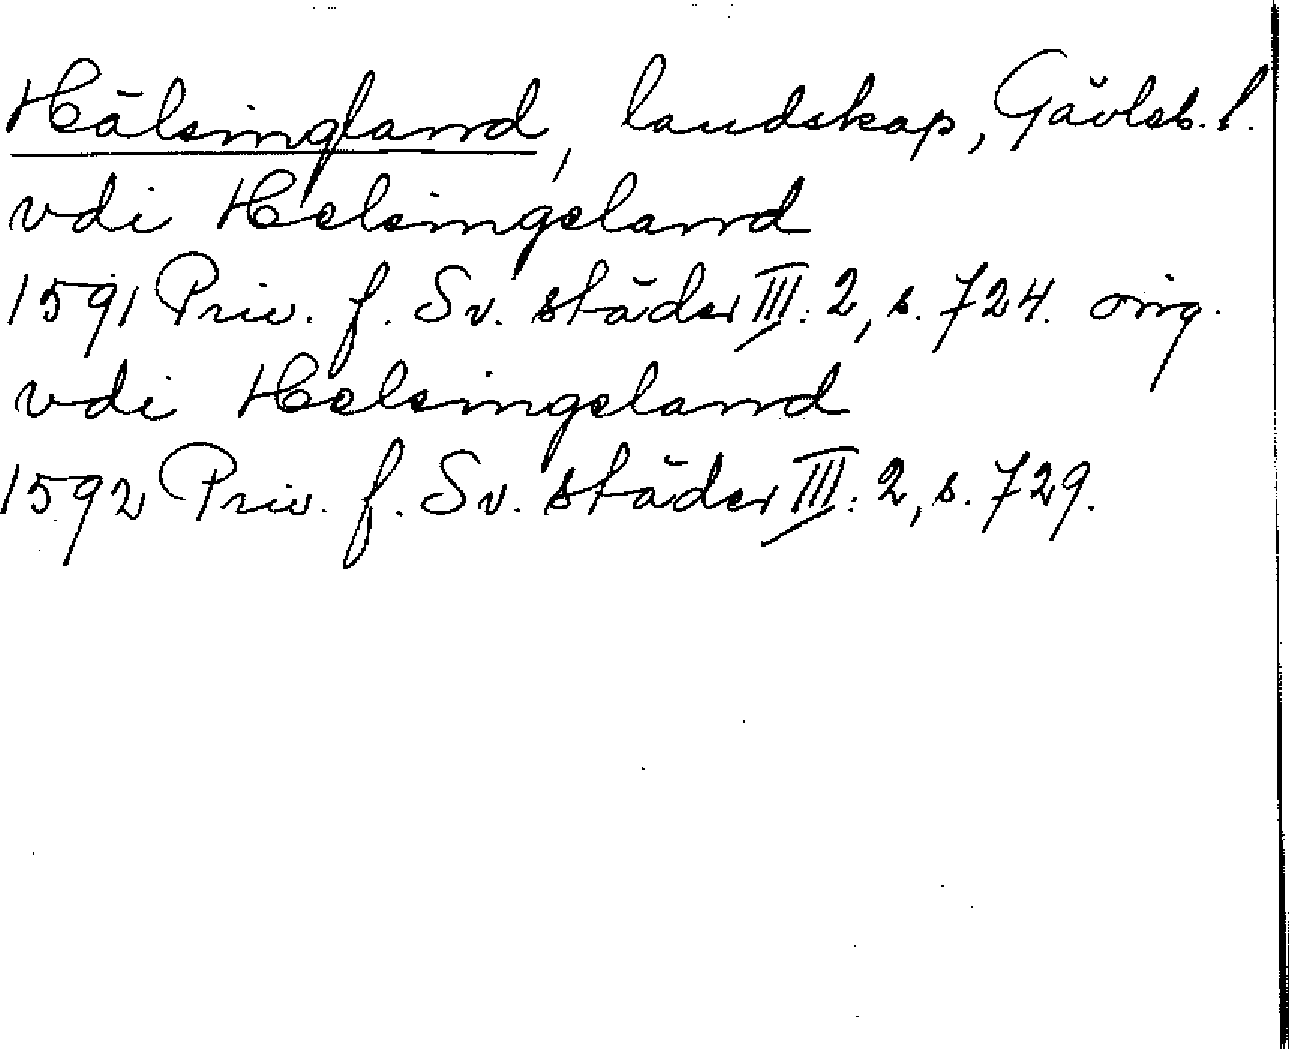 Hälsingland, landskap, Gävleb. l.
vdi Helsingeland
1591 Priv. f. Sv. städer III: 2, s. 724. orig.
vdi Helsingeland
1592 Priv. f. Sv. städer III: 2, s. 729.